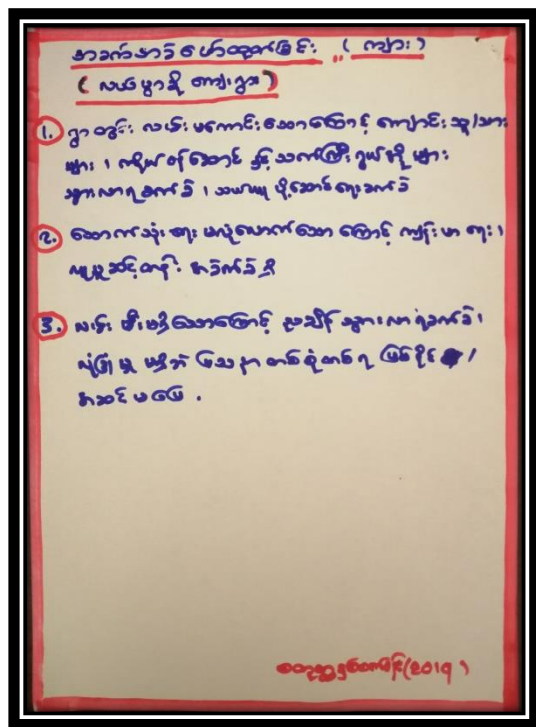 အခက်အခဲဖော်ထုတ်ခြင်း ( ကျား )
( လယ်မွာစို ကျေးရွာ )
၁. ရွာတွင်း လမ်းမကောင်းသောကြောင့် ကျောင်းသူ/သား
များ ၊ ကိုယ်ဝန်ဆောင် နှင့် သက်ကြီးရွယ်အိုများ
သွားလာရခက်ခဲ ၊ သယ်ယူပို့ဆောင်ရေးခက်ခဲ
၂. သောက်သုံးရေ မလုံလောက်သော ကြောင့် ကျန်းမာရေး ၊
လူမှုဆင့်တန်း အခက်ခဲရှိ
၃. လမ်းမီးမရှိသောကြောင့် ညအချိန် သွားလာရခက်ခဲ ၊
လုံခြုံမှု မရှိဘဲ ပြဿနာတစ်စုံတစ်ရာ ဖြစ်နိုင် /
အဆင်မပြေ .
(၂၀၁၇)